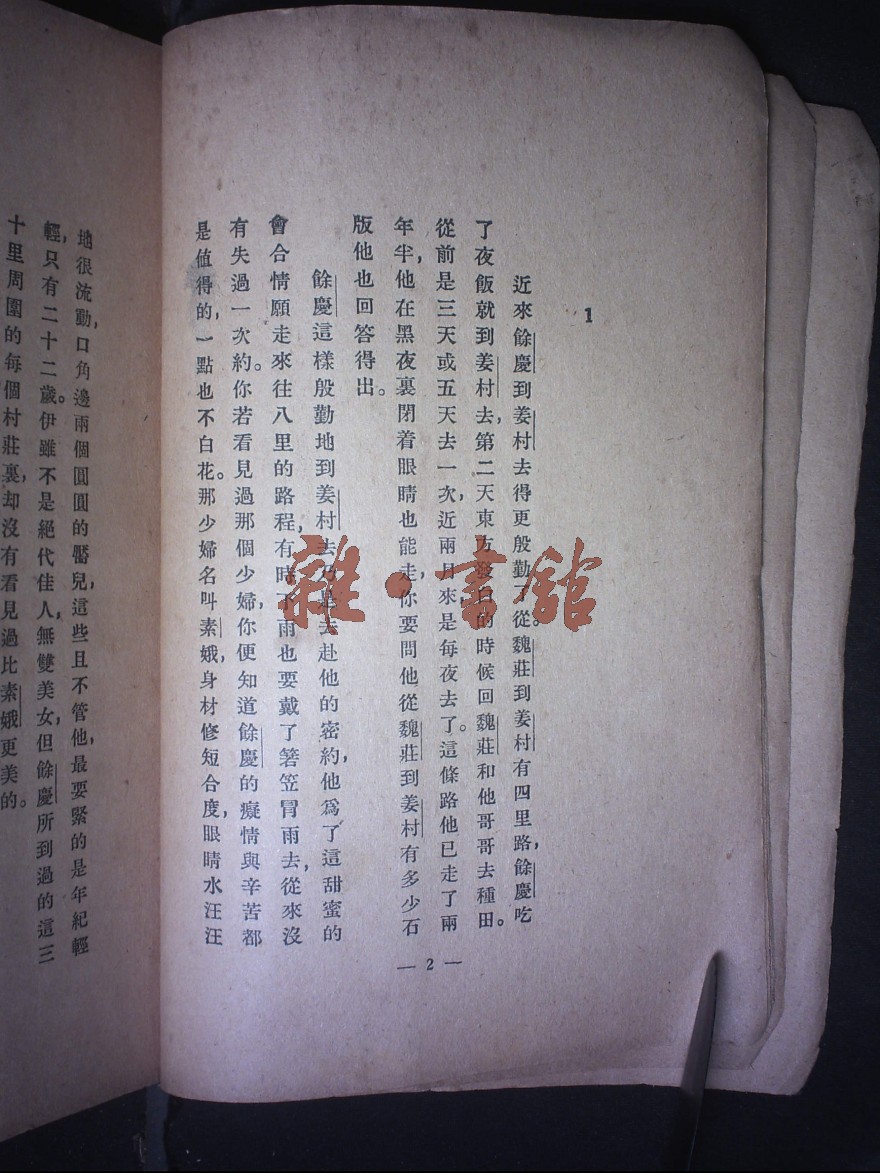 1
近來餘慶到姜村去得更殷勤了。從魏莊到姜村有四里路,餘慶吃
了夜飯就到姜村去,第二天東方發白的時候回魏莊和他哥哥去種田。
從前是三天或五天去一次,近兩月來是每夜去了。這條路他已走了兩
年半,他在黑夜裏閉着眼睛也能走,你要問他從魏莊到姜村有多少石
版他也回答得出。
餘慶這樣殷勤地到姜村去乃是去赴他的密約,他爲了這甜蜜的
會合情願走來往八里的路程,有時下雨也要戴了箬笠冒雨去,從來沒
有失過一次約。你若看見過那個少婦,你便知道餘慶的癡情與辛苦都
是值得的,一點也不白花。那少婦名叫素娥,身材修短合度,眼睛水汪汪
— 2 —
地很流動,口角邊兩個圓圓的靨兒,這些且不管他,最要緊的是年紀輕
輕,只有二十二歲。伊雖不是絕代佳人,無雙美女,但餘慶所到過的這三
十里周圍的每個村莊裏,却沒有看見過比素娥更美的。
雜·書館